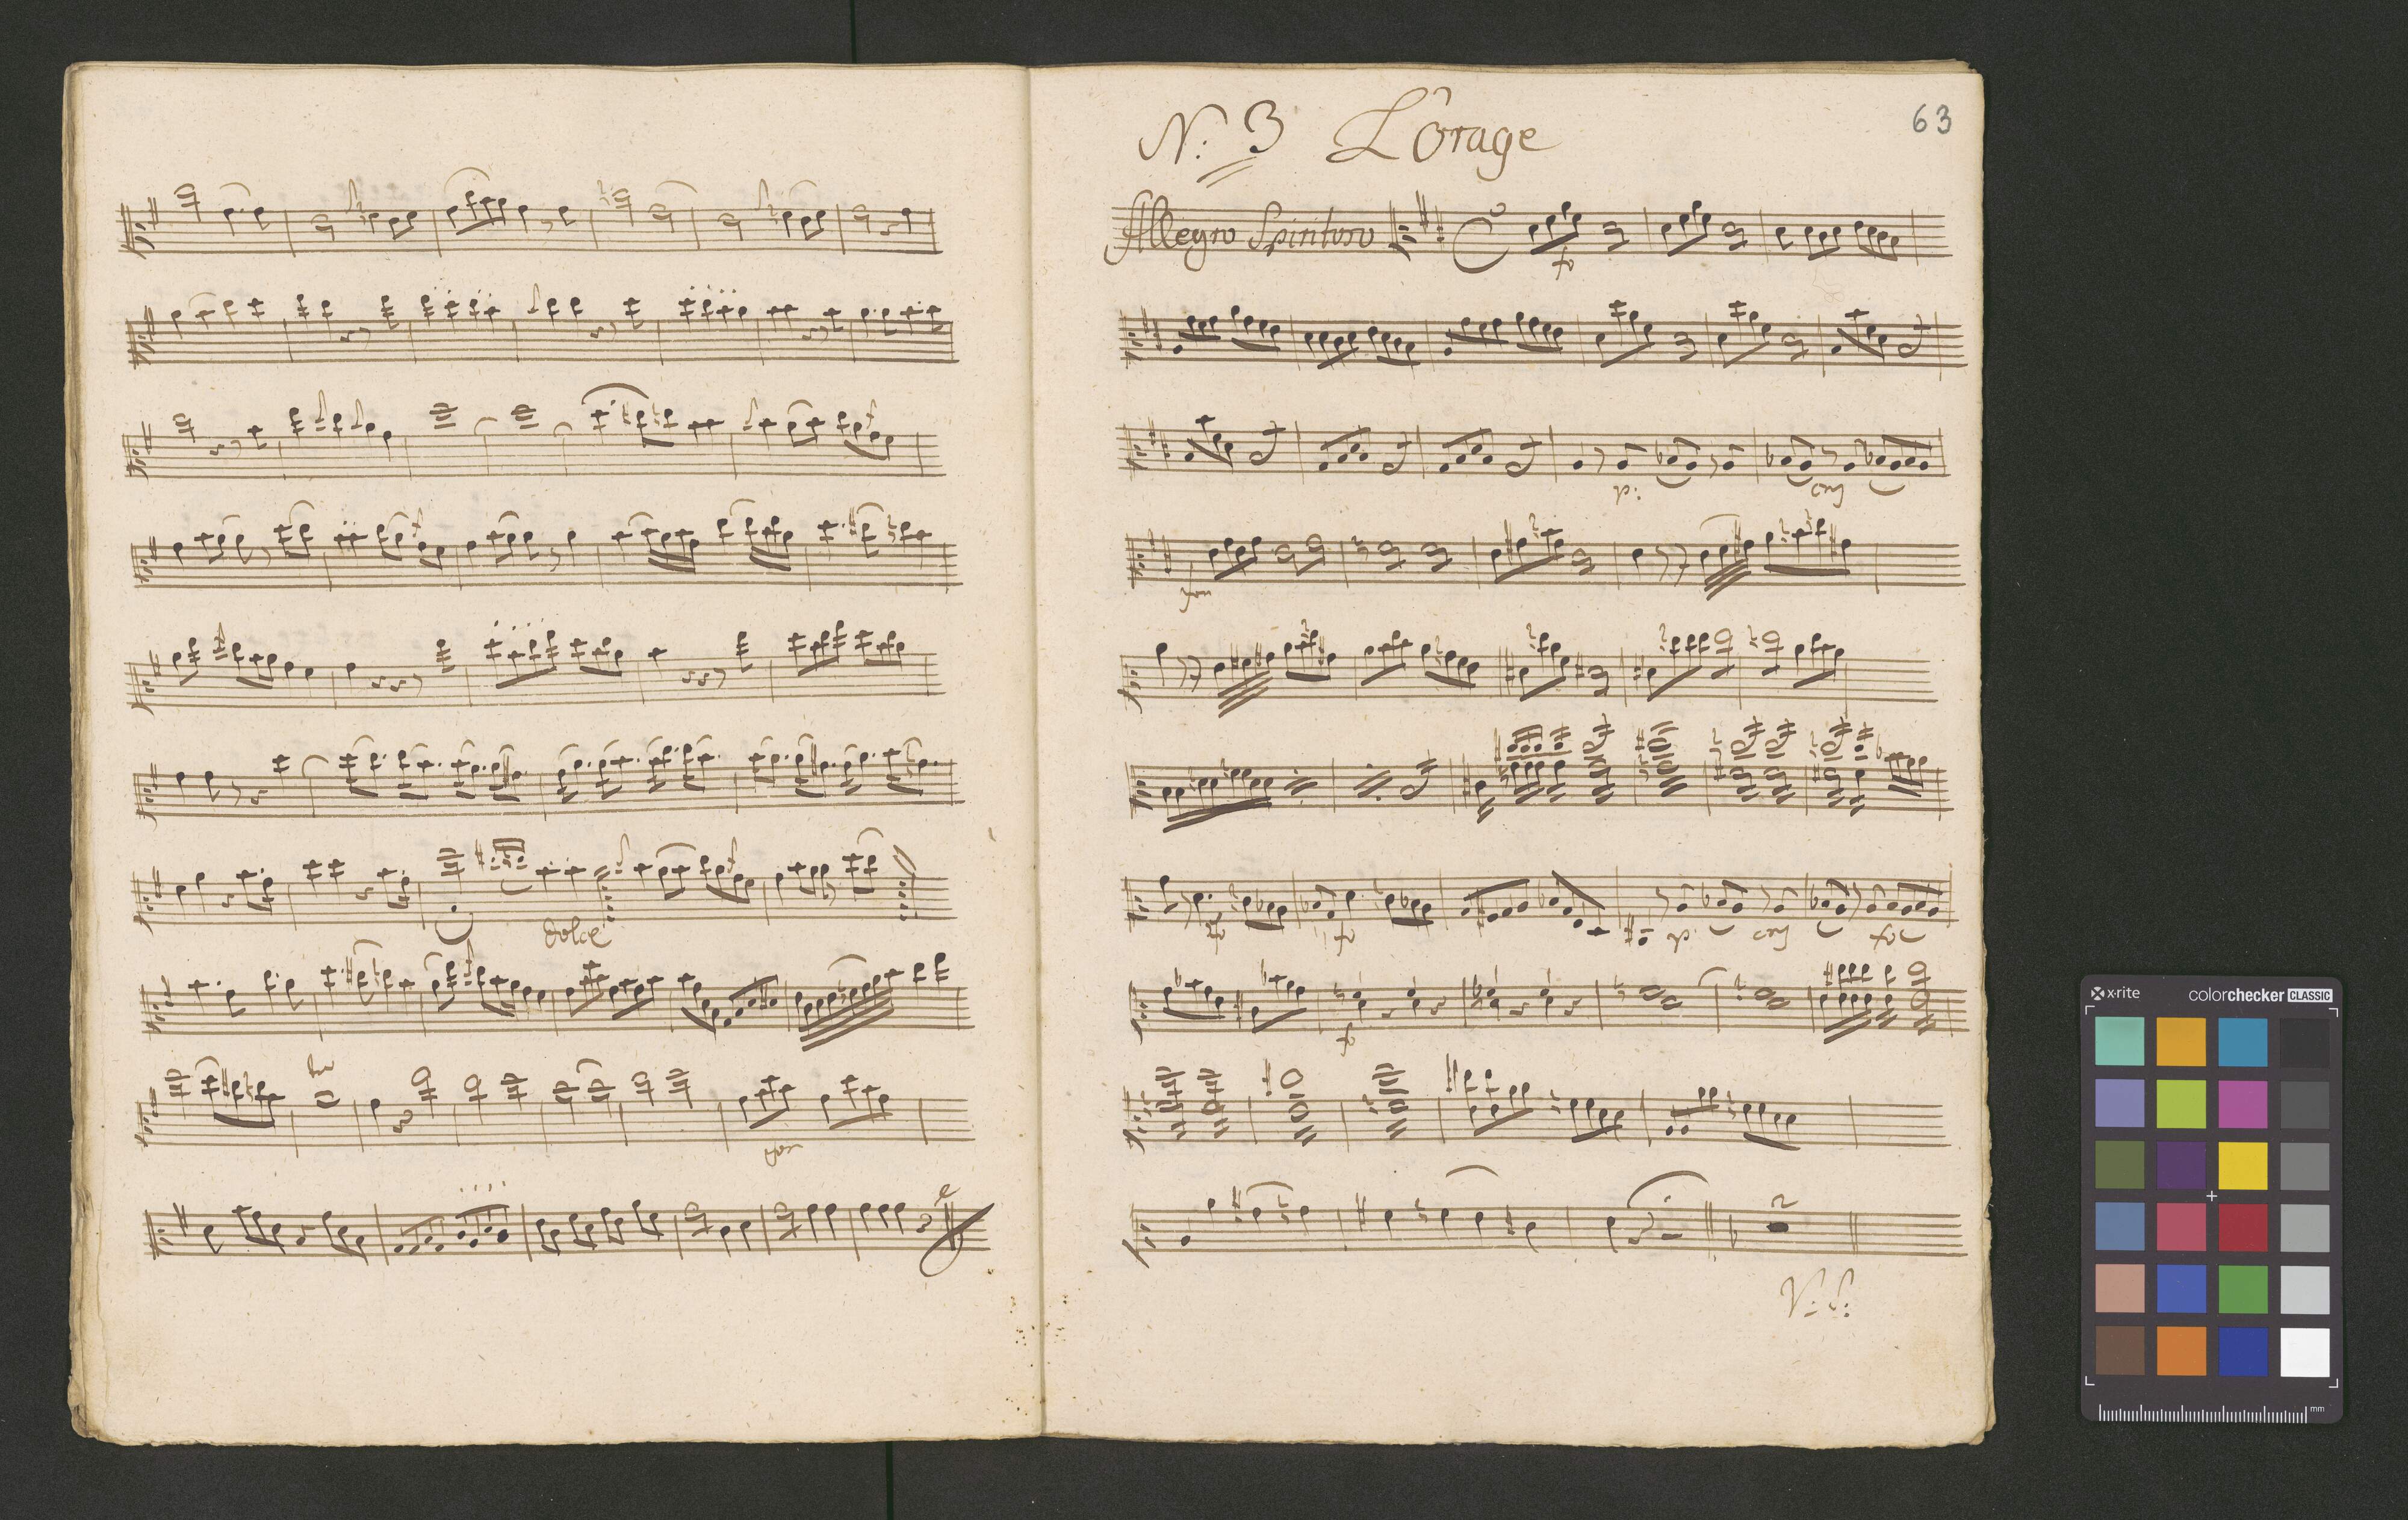 dolce
for
N: 3 L'Orage
63
Allegro Spiritoso
f
p:
cres
for
fo
fo
p.
cres
fo
f
V: S:
x-rite
colorchecker CLASSIC
mm